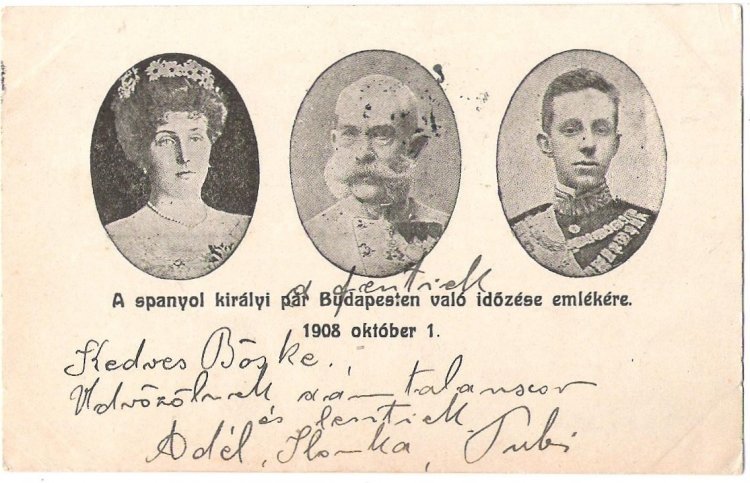 a fentiek
A spanyol királyi pár Budapesten való időzése emlékére.
1908 október 1.
Kedves Böske!
Üdvözölnek számtalanszor
és lentiek
Adél, Ilonka, Tubi